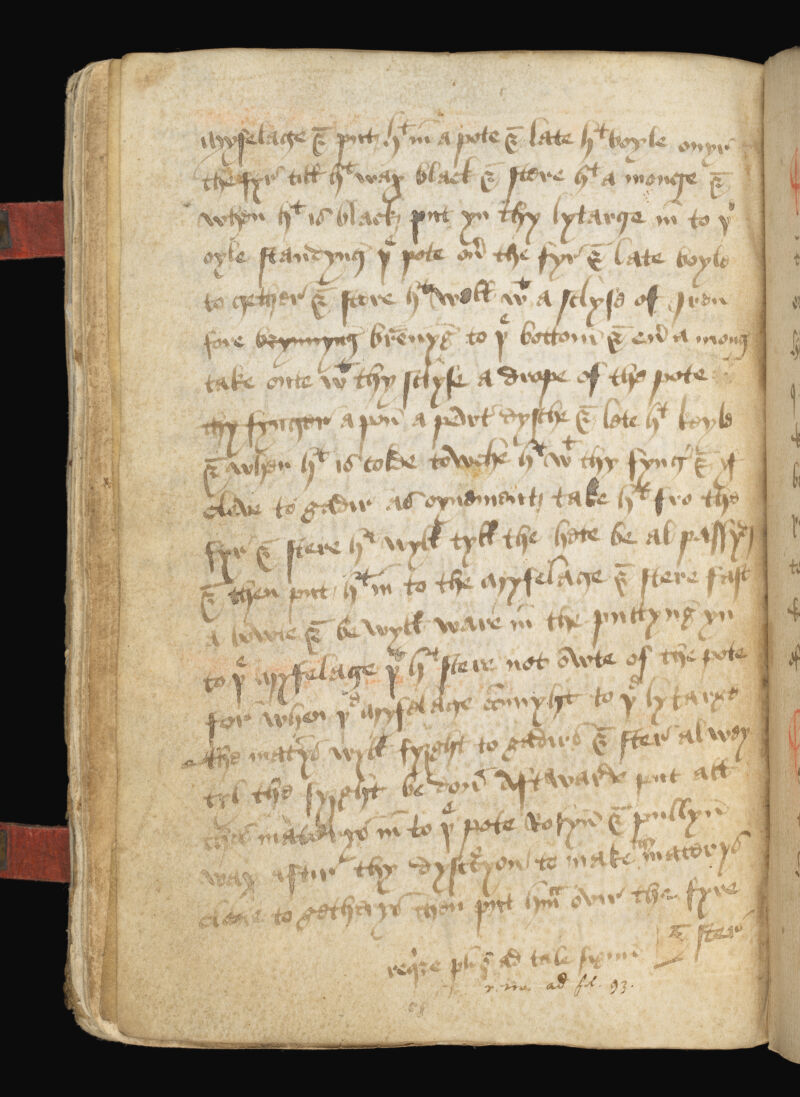 myselage & put hᵗ in a pote & late hᵗ boyle onyr
the fyr till hᵗ wax black & stere hᵗ a monge &
when hᵗ is black put yn thy lytarge in to yᵉ
oyle standyng yᵉ pote on̄ the fyr & late boyle
to gether & stere hᵗ well wᵗ a sclyse of Iron
fore brynnyng brēnyḡ to yᵉ bottom & en̄ a mong
take oute wᵗ thy sclyse a drope of the pote
thy fynger a pon̄ a dysche & lete hᵗ
& when hᵗ is colde towche hᵗ wᵗ thy fyng̓ & yf
cleve to gadir as oynement take hᵗ fro the
fyr & stere hᵗ wyll tyll the hete be al passyd
& then put hᵗ in to the myselage & stere fast
a bowte & be wyll ware in the puttyng yn
to yᵉ myselage yᵗ hᵗ stere not owte of the pote
for when yᵉ myselage comyht to yᵉ lytarge
the mat̓s wyll fyght to gadire & ster alway
tyl the fyght be don̄ Aft̓warde put all
thes materys in to yᵉ pote Rosyn̄ & pullyn̄
wax aftur thy dyscrecyon to make materys
cleve to getherys then put hm̄ ovir the fyre
& ster
req̓re pl̓ ad tale signū
ad fol. 93.